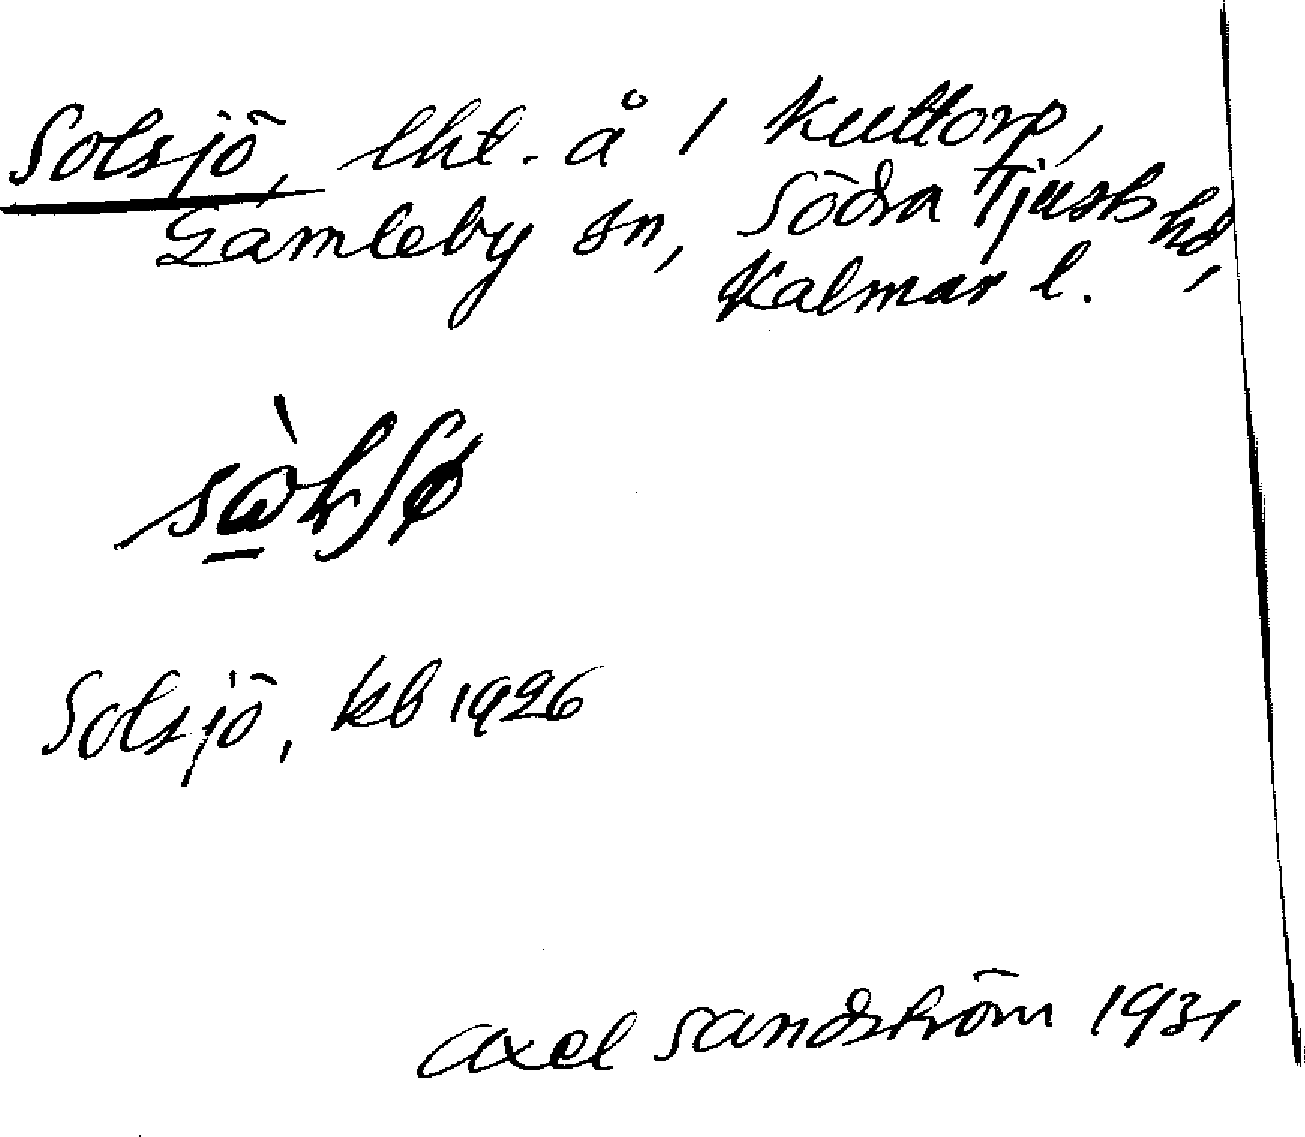 Solsjö, lht. å 1 Kuttorp,
Gamleby sn, Södra Tjusts hd,
Kalmar l.
Solsjö, kb 1926
Axel Sandström 1931